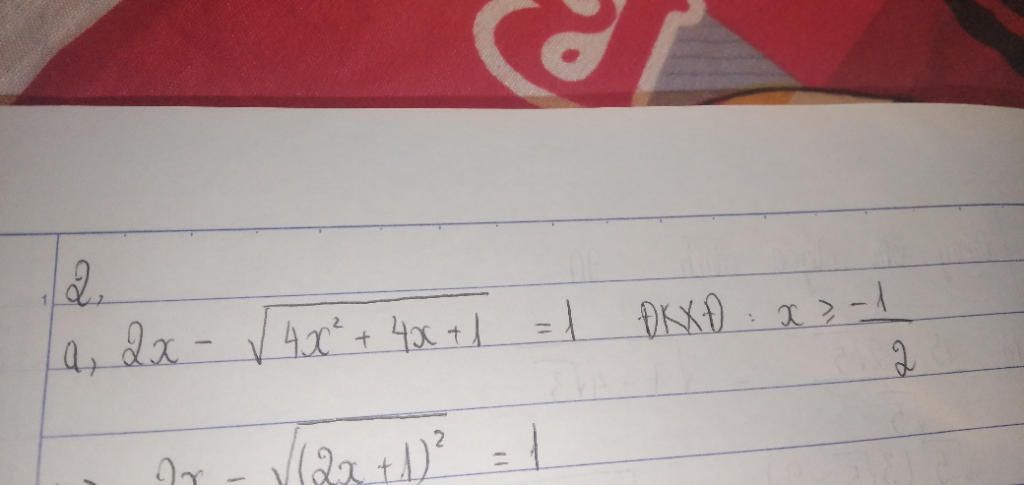 2,
a, 2x - √(4x² + 4x + 1) = 1 ĐKXĐ : x ≥ -1/2
2x - √((2x + 1)²) = 1